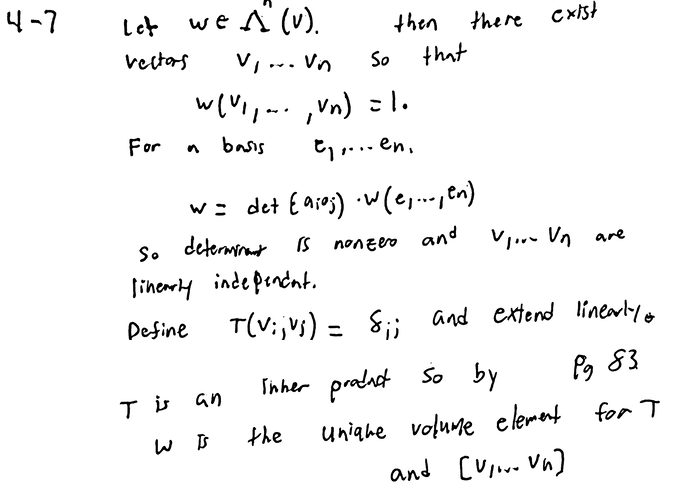 4-7 Let w ∈ Λⁿ(V). then there exist
vectors v₁ ... vₙ so that
w(v₁, ... , vₙ) = 1.
For a basis e₁, ... eₙ,
w = det (aᵢⱼ) · w(e₁, ..., eₙ)
So determinant is nonzero and v₁, ... vₙ are
linearly independent.
Define T(vᵢ, vⱼ) = δᵢⱼ and extend linearly.
T is an inner product so by pg 83
w is the unique volume element for T
and [v₁, ... vₙ]